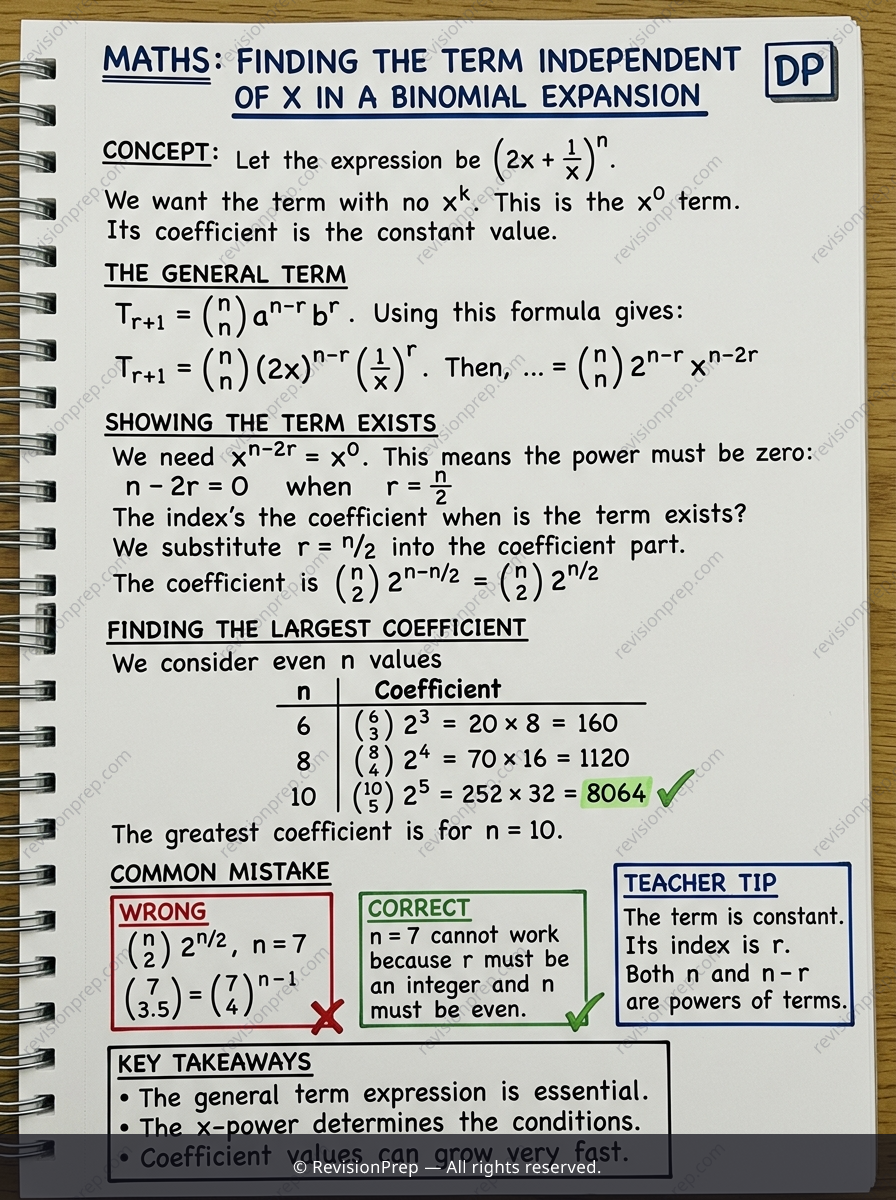 MATHS: FINDING THE TERM INDEPENDENT
OF X IN A BINOMIAL EXPANSION
DP
CONCEPT: Let the expression be (2x + 1/x)^n.
We want the term with no x^k. This is the x^0 term.
Its coefficient is the constant value.
THE GENERAL TERM
T_{r+1} = (n n) a^{n-r} b^r. Using this formula gives:
T_{r+1} = (n n) (2x)^{n-r} (1/x)^r. Then, ... = (n n) 2^{n-r} x^{n-2r}
SHOWING THE TERM EXISTS
We need x^{n-2r} = x^0. This means the power must be zero:
n - 2r = 0 when r = n/2
The index's the coefficient when is the term exists?
We substitute r = n/2 into the coefficient part.
The coefficient is (n 2) 2^{n-n/2} = (n 2) 2^{n/2}
FINDING THE LARGEST COEFFICIENT
We consider even n values
n Coefficient
6 (6 3) 2^3 = 20 × 8 = 160
8 (8 4) 2^4 = 70 × 16 = 1120
10 (10 5) 2^5 = 252 × 32 = 8064 ✓
The greatest coefficient is for n = 10.
COMMON MISTAKE
WRONG
(n 2) 2^{n/2}, n = 7
(7 3.5) = (7 4)^{n-1}
CORRECT
n = 7 cannot work
because r must be
an integer and n
must be even.
TEACHER TIP
The term is constant.
Its index is r.
Both n and n - r
are powers of terms.
KEY TAKEAWAYS
• The general term expression is essential.
• The x-power determines the conditions.
• Coefficient values can grow very fast.
© RevisionPrep — All rights reserved.
revisionprep.com